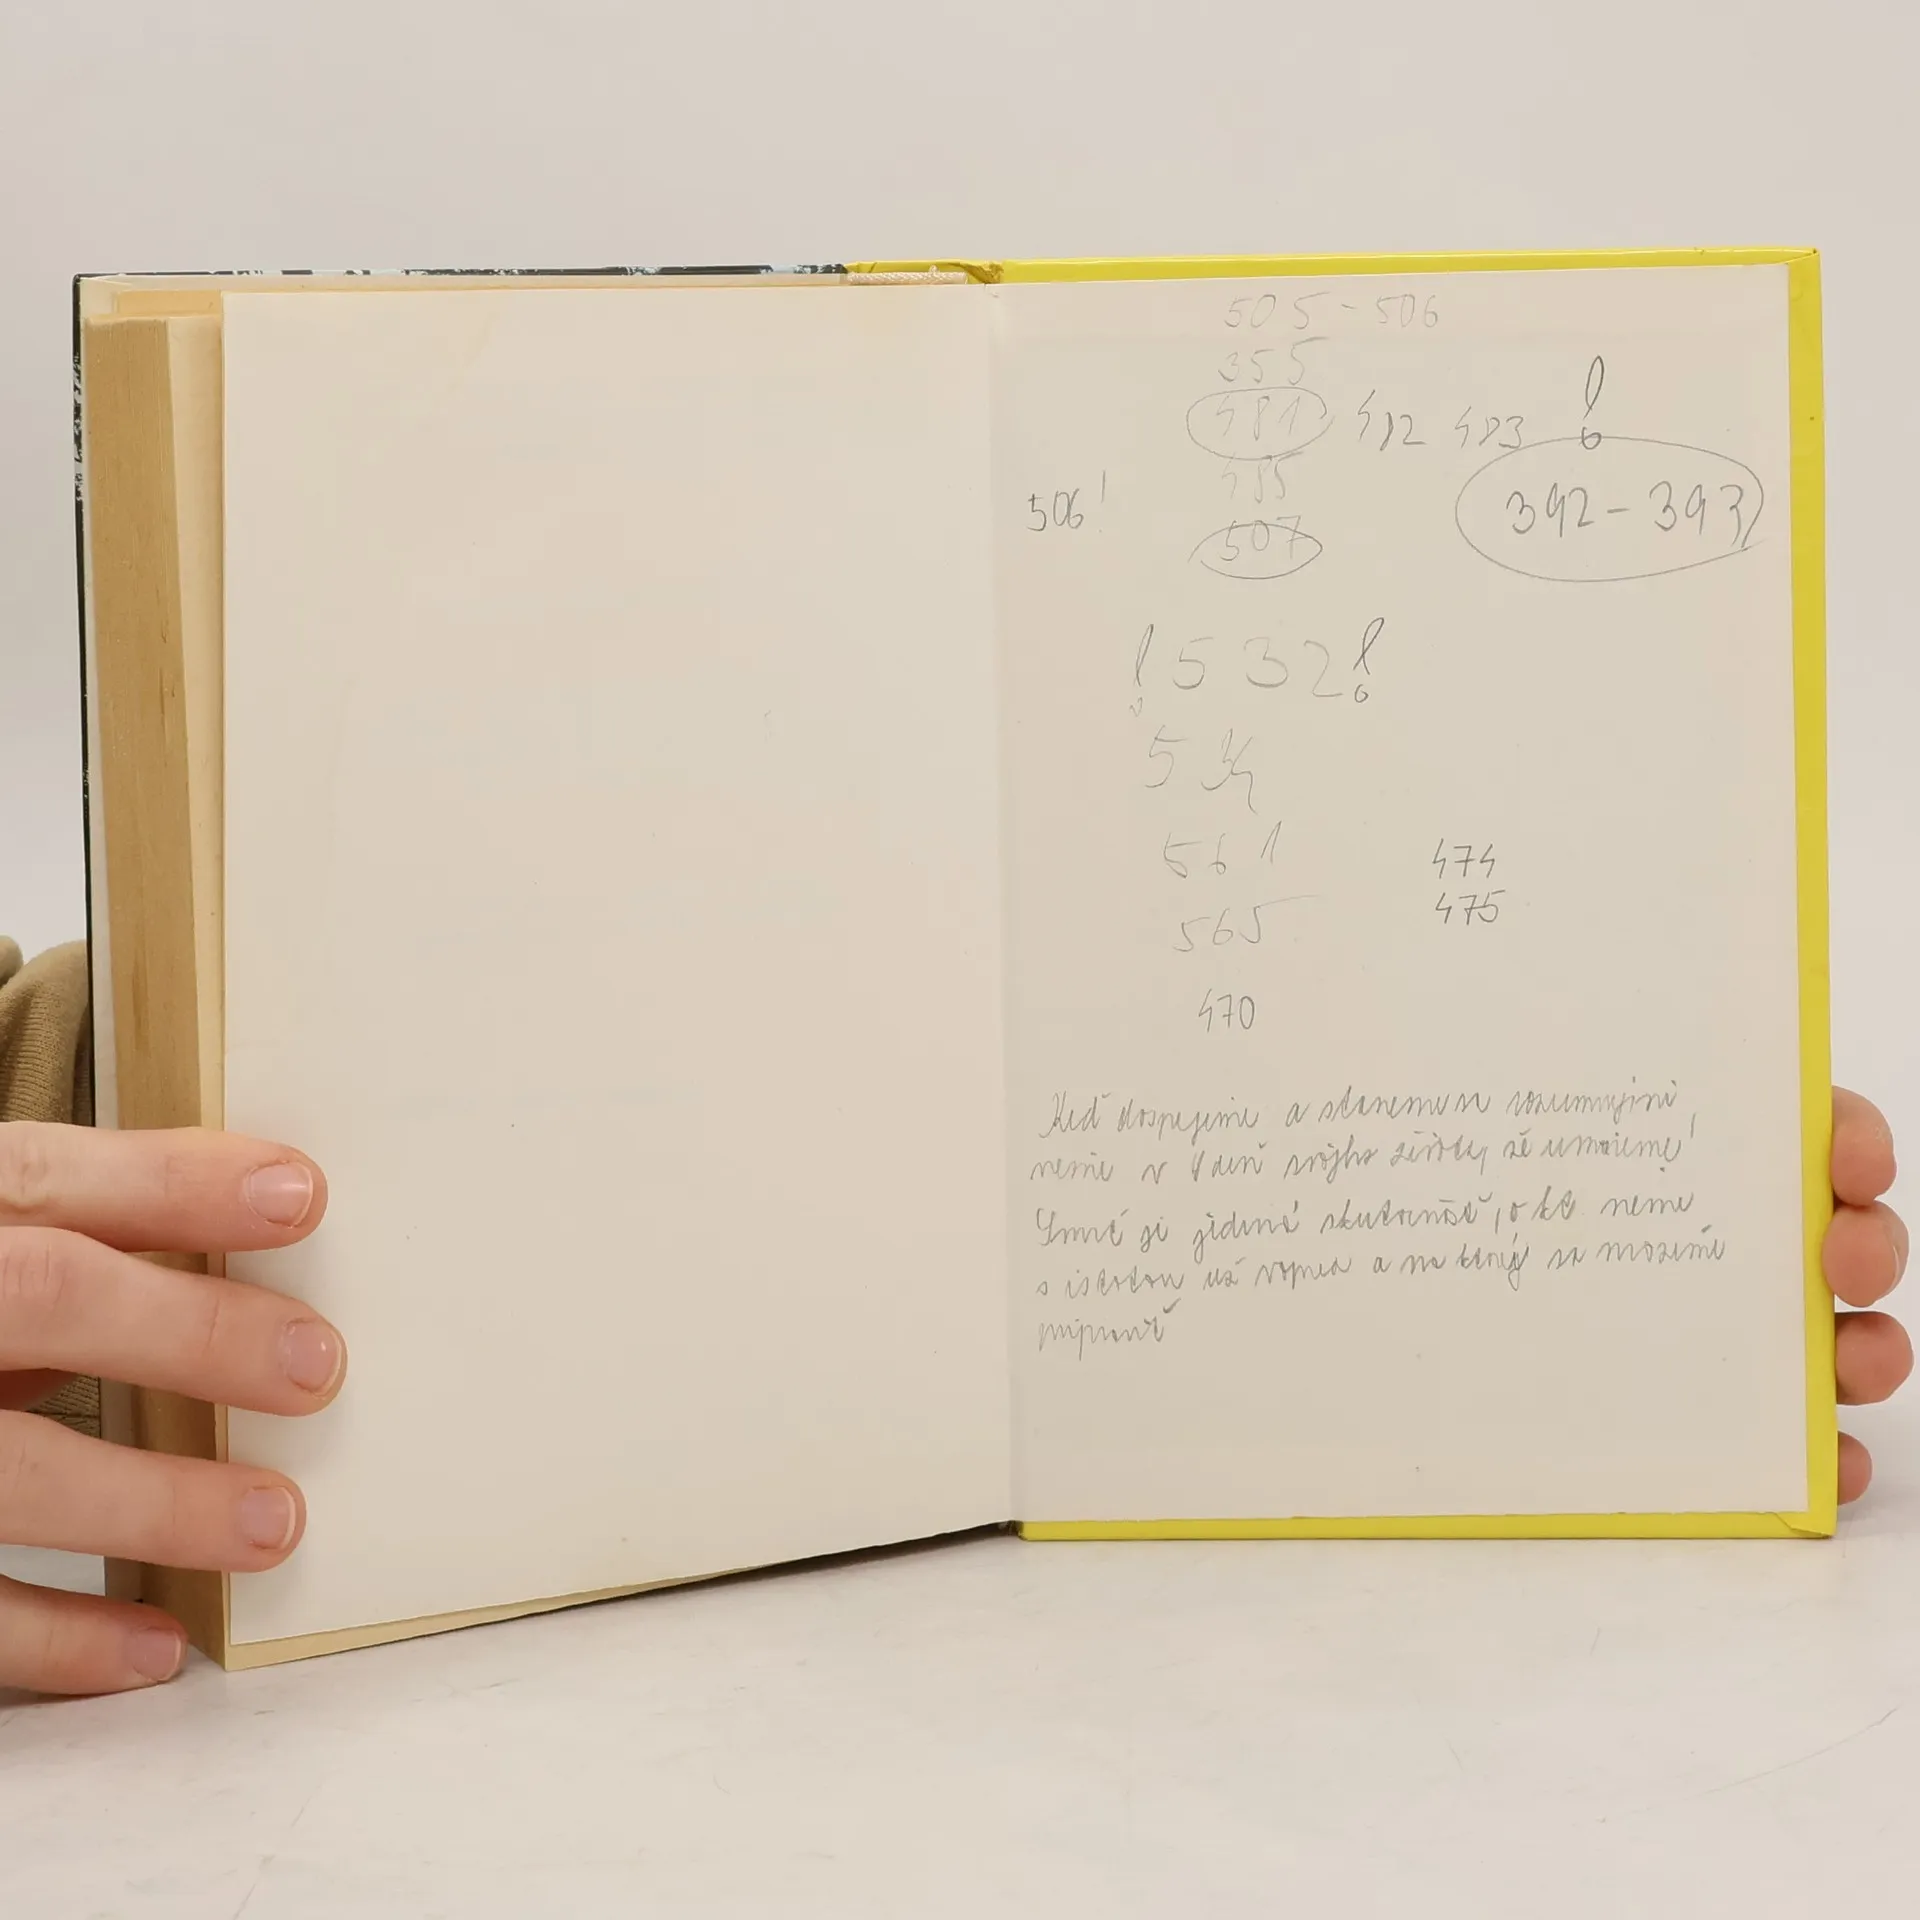 505 - 506
355
481 482 483 !
485
506! 392 - 393
507
! 532 !
534
561
565
474
475
470
Keď dospejeme a staneme sa rozumnejšími
vieme v 1 deň svojho života, že umrieme!
Smrť je jediná skutočnosť, o kt. vieme
s istotou už vopred a na ktorú sa môžeme
pripraviť